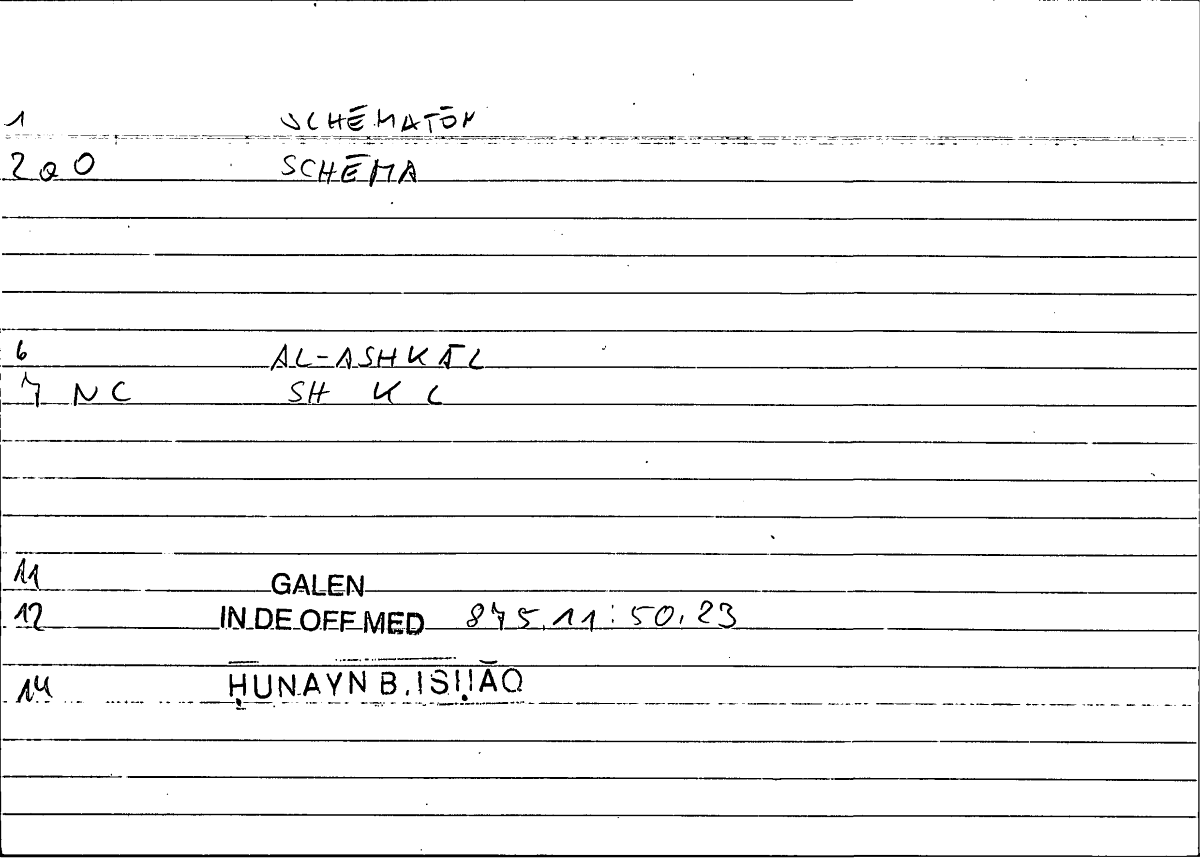 1 SCHĒMATŌN
2 a O SCHĒMA
6 AL-ASHKĀL
7 NC SH K L
11 GALEN
12 IN DE OFF MED 875.11:50.23
14 ḤUNAYN B. ISḤĀQ